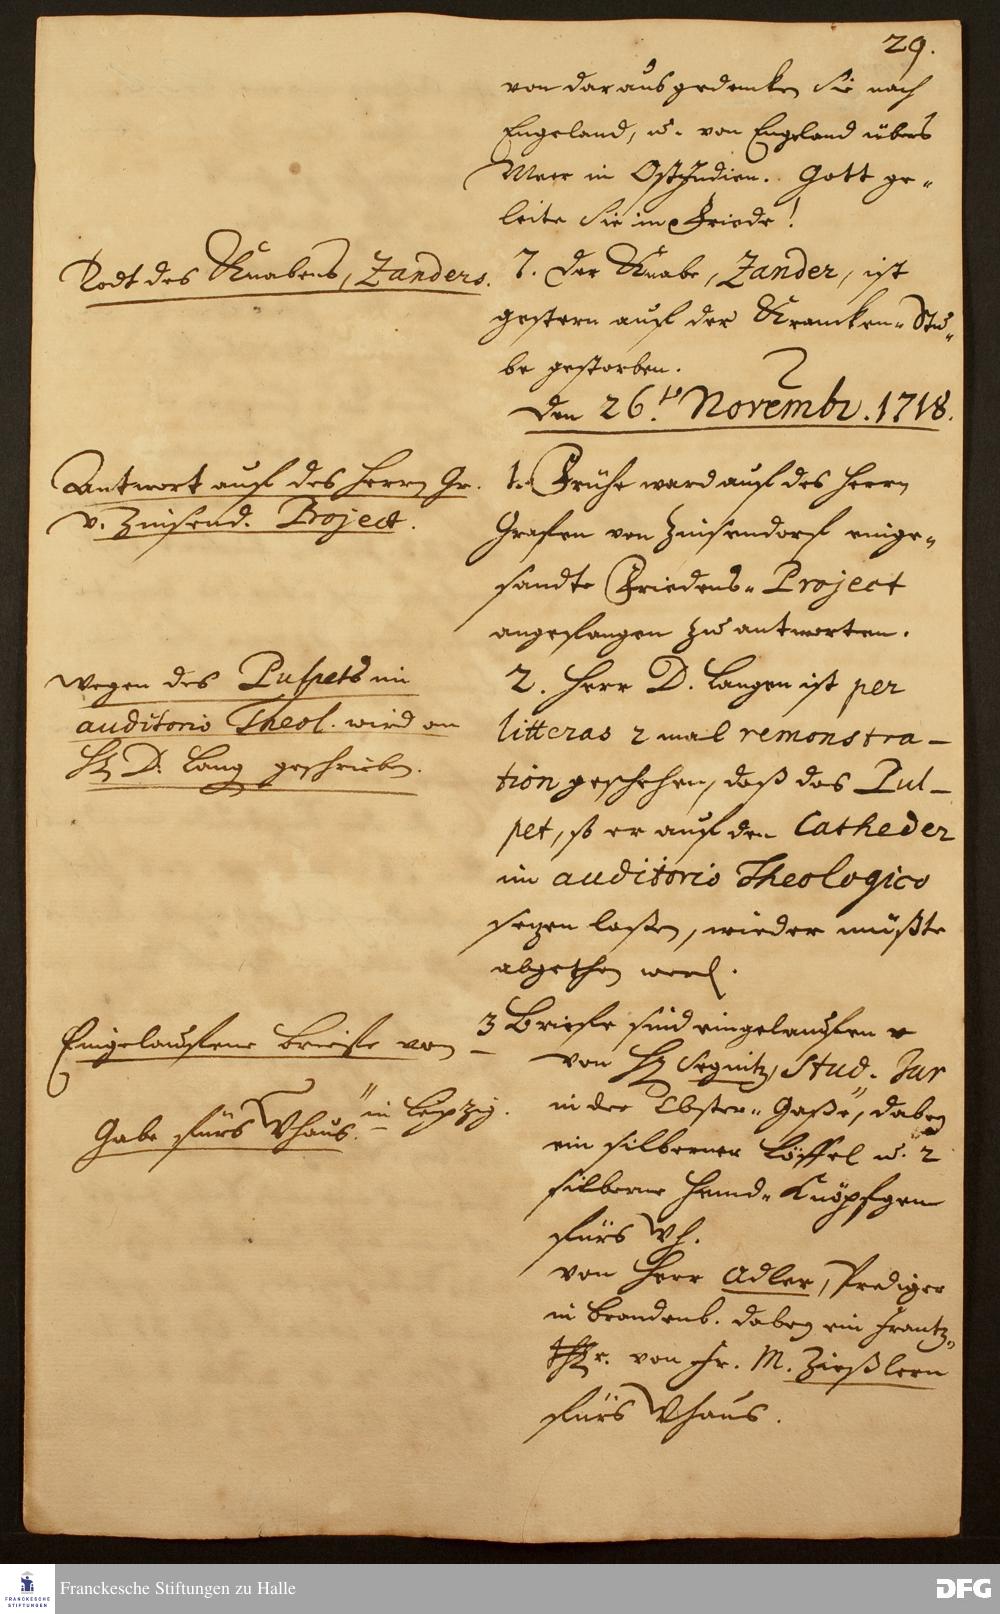 29.
von dar aus gedencken Sie nach
Engeland, u. von Engeland übers
Meer in OstIndien. Gott ge-
leite Sie im Friede!
Todt des Knabens, Zanders.
7. Der Knabe, Zander, ist
gestern auf der Krancken-Stu-
be gestorben.
Den 26. Novembr. 1718.
Antwort auf des Herrn Gr.
v. Zinsend. Project.
1. Frühe ward auf des Herrn
Grafen von Zinsendorf einge-
sandte Friedens-Project
angefangen zu antworten.
wegen des Pulpets im
auditorio Theol. wird an
H. D. Lang geschrieben.
2. Herr D. Langen ist per
litteras 2 mal remonstra-
tion geschehen, daß das Pul-
pet, so er auf den Catheder
im auditorio Theologico
setzen laßen, wieder müßte
abgethan werd.
Eingelaufene briefe von
Gabe fürs Whaus. in Leipzig.
3 Briefe sind eingelaufen
von H. Segnitz, Stud. Jur
in der Gaße, dabey
ein silberner Löffel u. 2
silberne Hemd-Knöpfgen
fürs Wh.
von Herr Adler, Prediger
in Brandenb. dabey ein Frantz-
thlr. von Fr. M. Zießlern
fürs Whaus.
Franckesche Stiftungen zu Halle
FRANCKESCHE
STIFTUNGEN
DFG